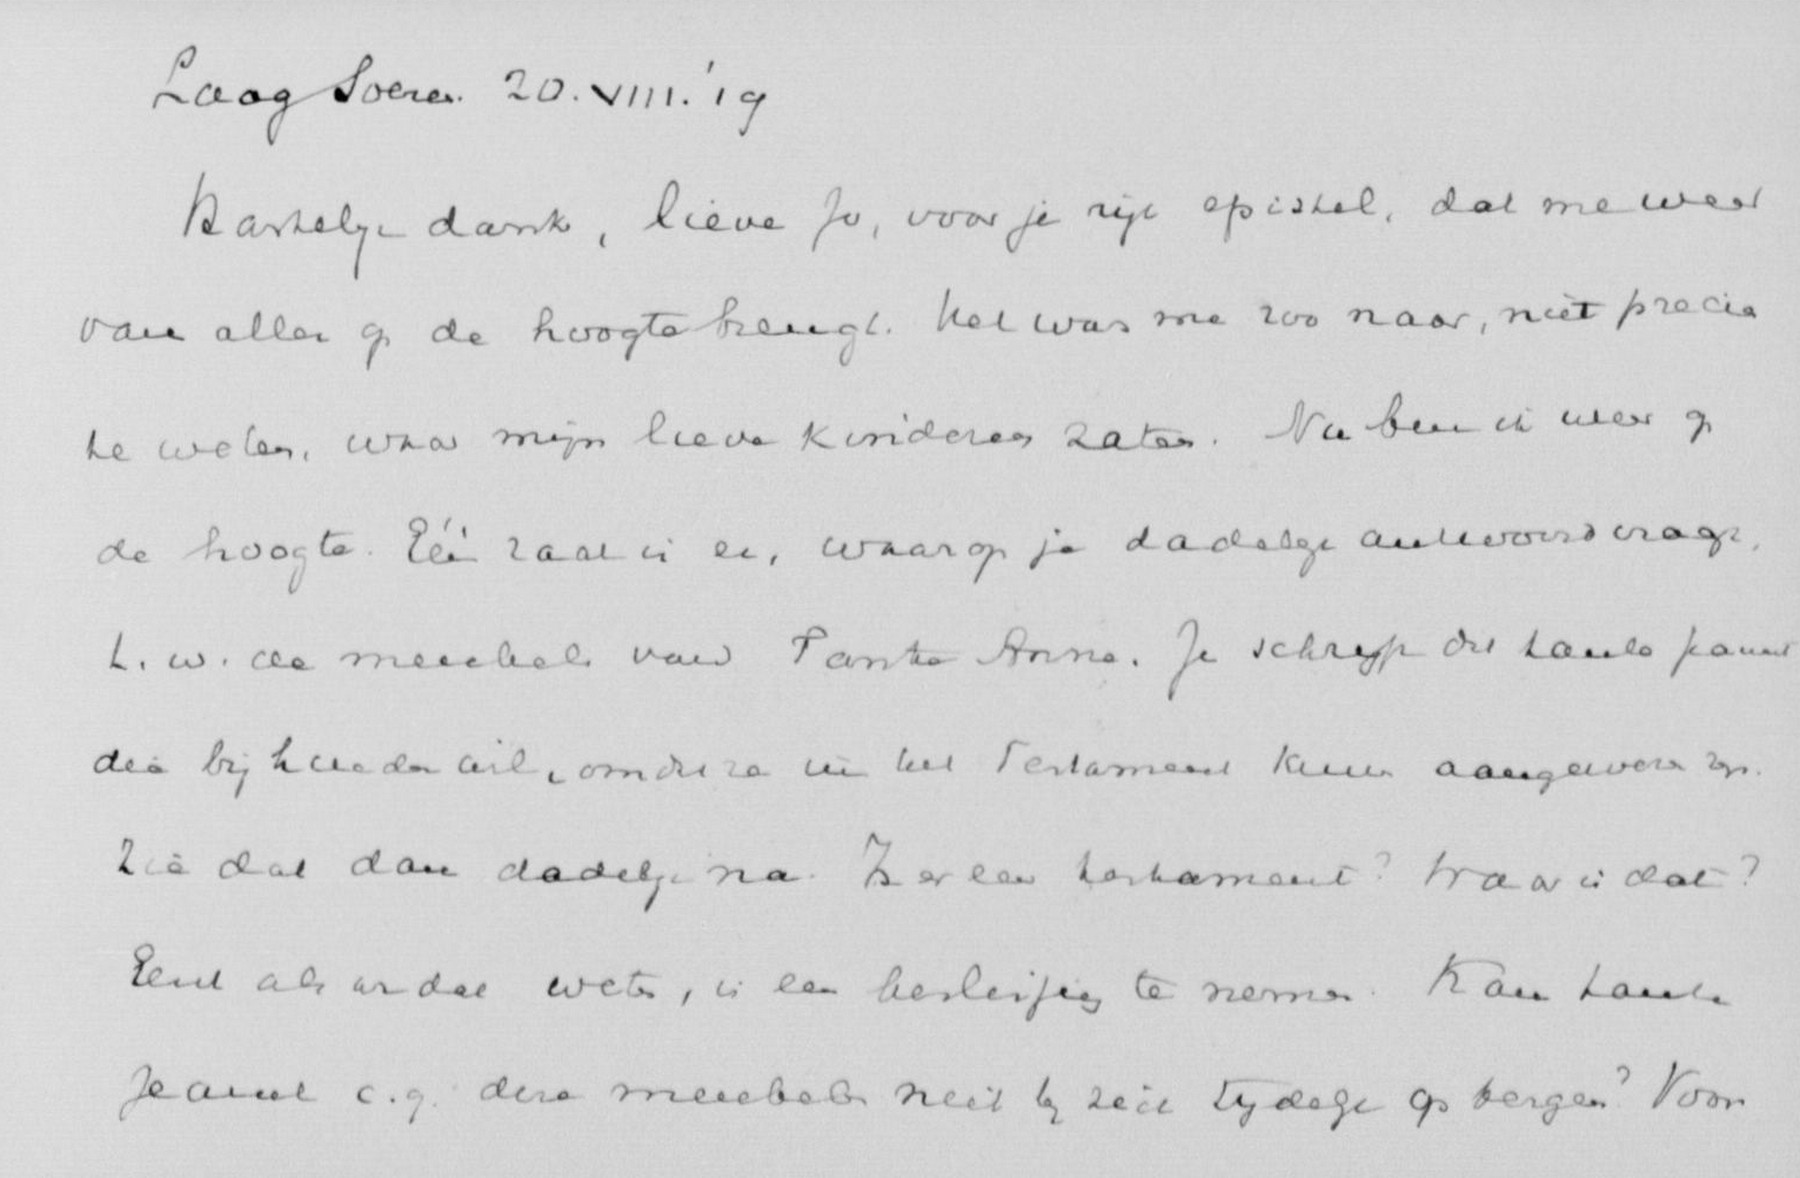 Laag Soeren. 20.VIII.'19
Hartelijk dank, lieve Jo, voor je rijk epistel, dat me weer
van alles op de hoogte brengt. Het was me zoo naar, niet precies
te weten, waar mijn lieve kinderen zaten. Nu ben ik weer op
de hoogte. Eén zaak is er, waarop je dadelijk antwoord vraagt,
t.w. de meubels van Tante Anna. Je schrijft dat tante Jeanne
die bij houden wil, omdat ze in het Testament kunnen aangewezen zijn.
Zie dat dan dadelijk na. Is er een testament? Waar is dat?
Eerst als we dat weten, is een beslissing te nemen. Kan tante
Jeanne c.q. deze meubels niet bij zich tijdelijk op bergen? Voor